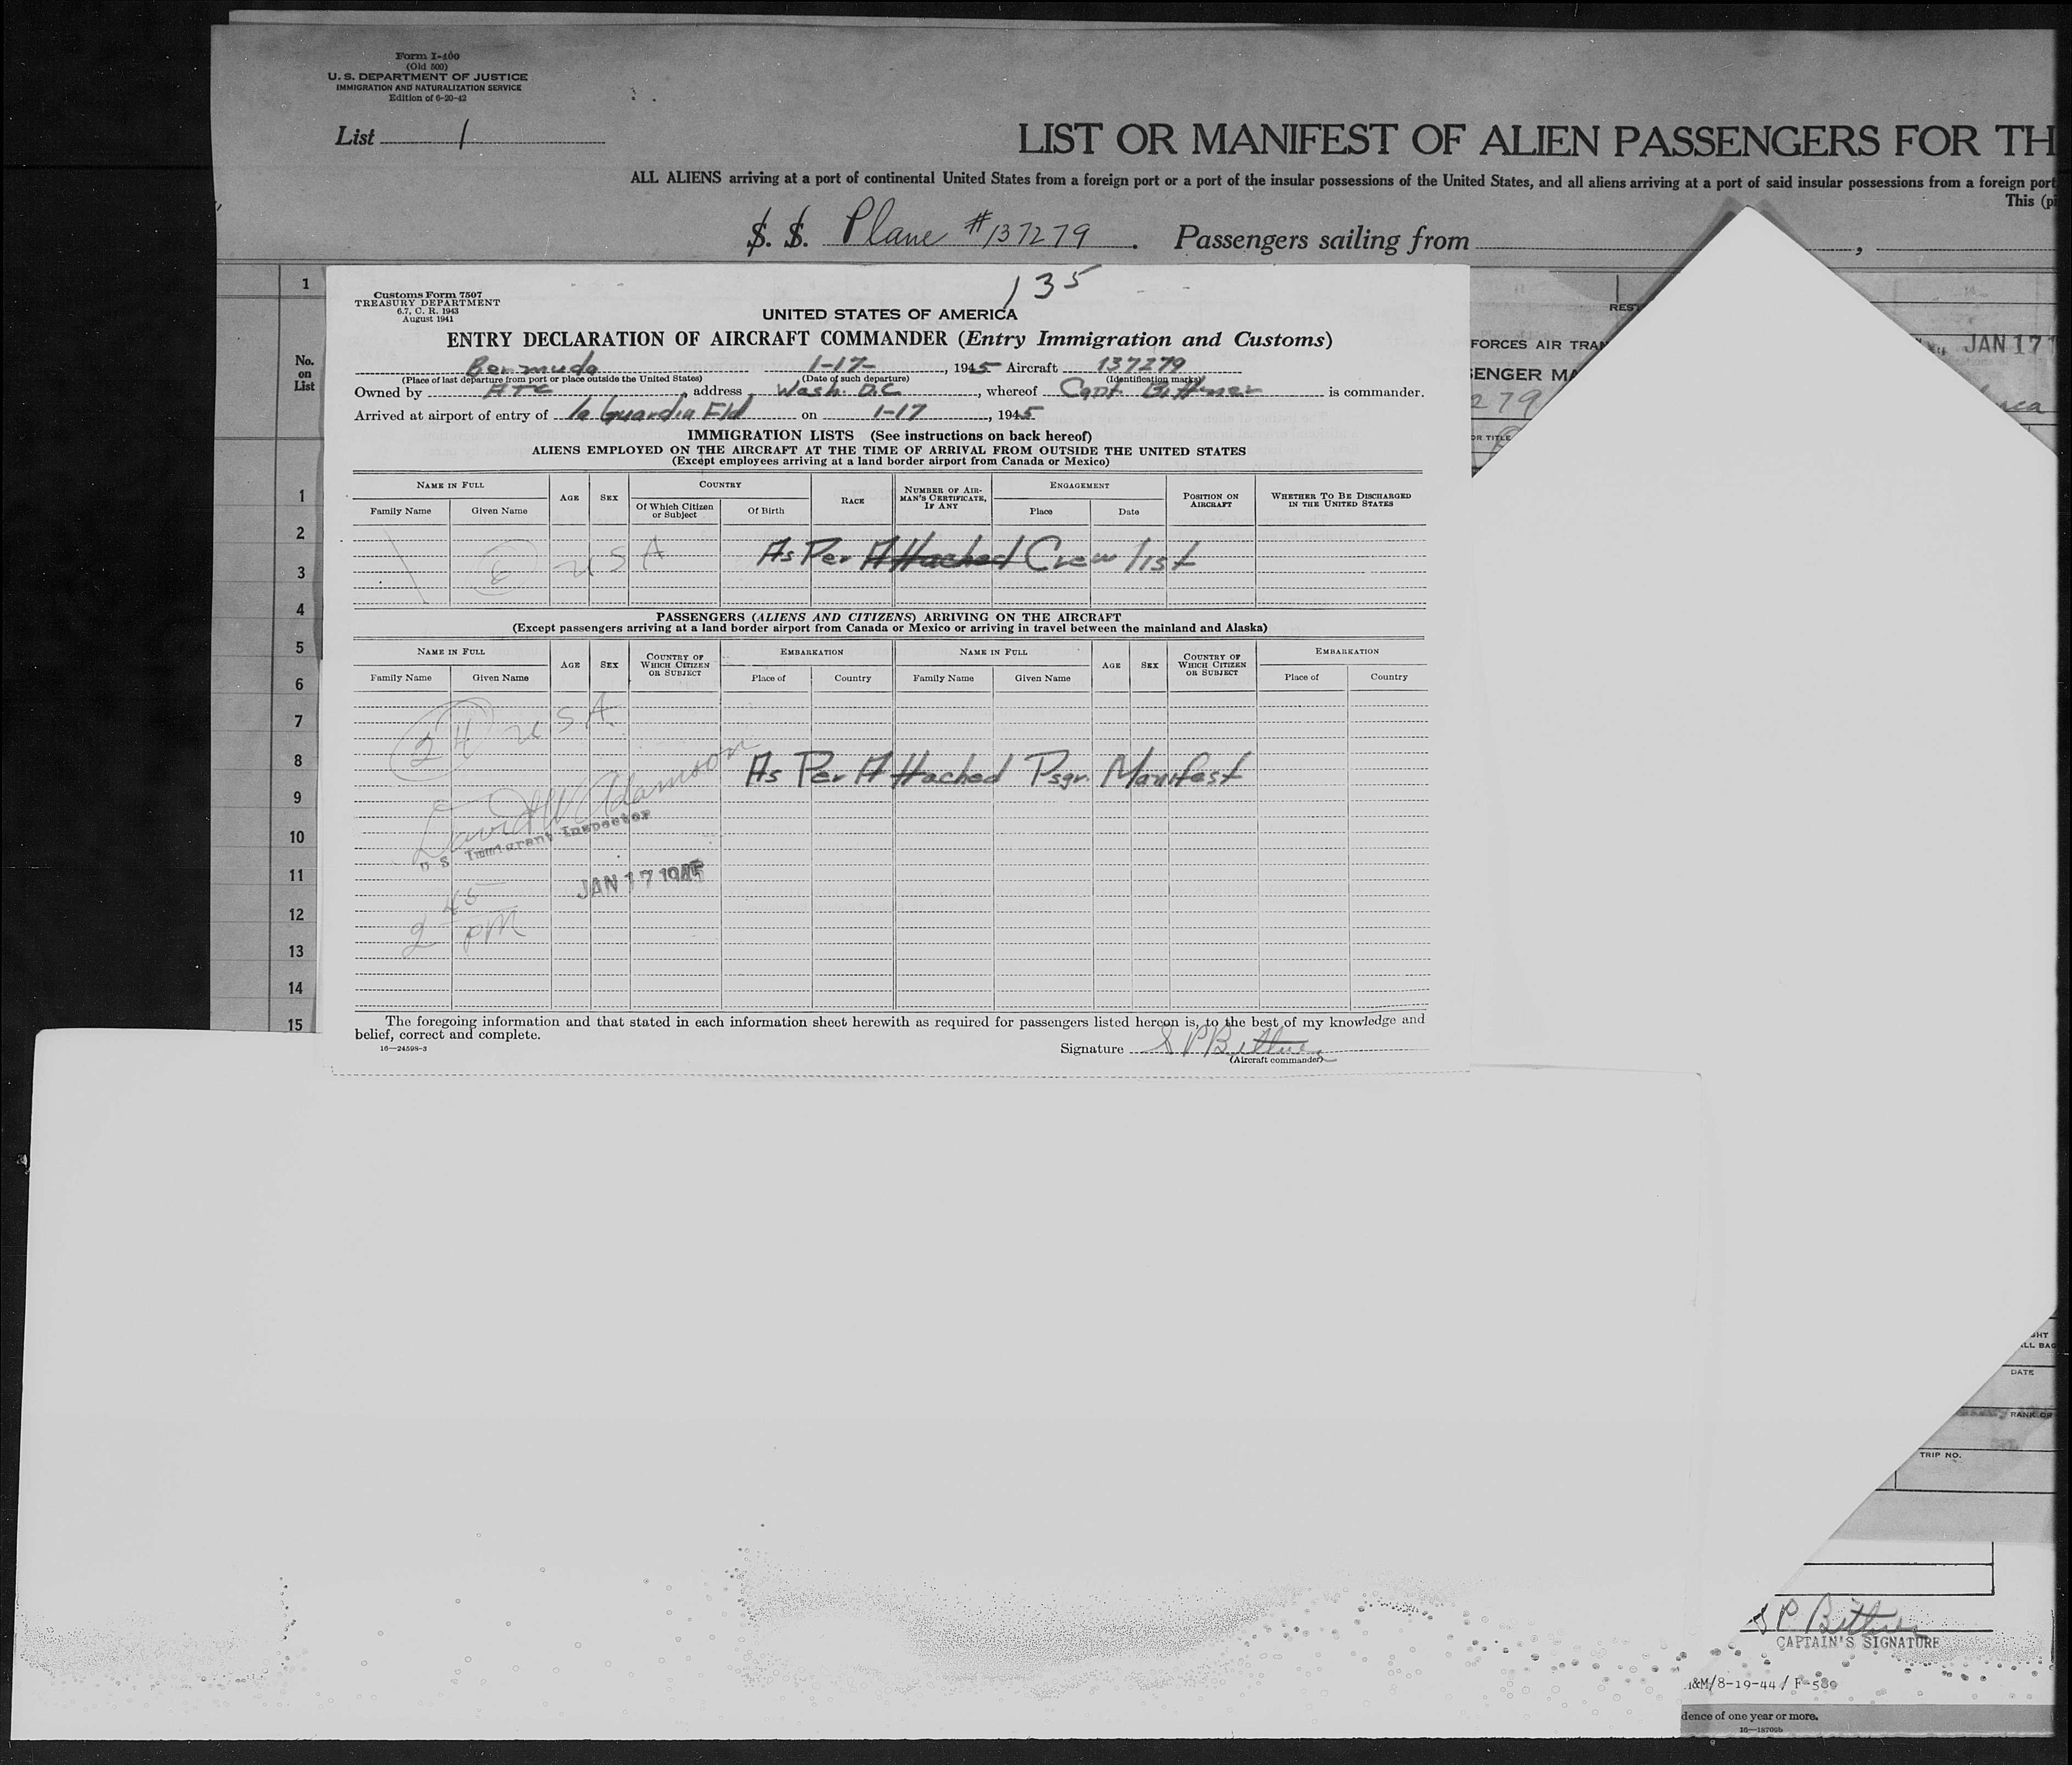 Form I-400
(Old 500)
U. S. DEPARTMENT OF JUSTICE
IMMIGRATION AND NATURALIZATION SERVICE
Edition of 6-20-42
List 1
LIST OR MANIFEST OF ALIEN PASSENGERS FOR TH
ALL ALIENS arriving at a port of continental United States from a foreign port or a port of the insular possessions of the United States, and all aliens arriving at a port of said insular possessions from a foreign port
This (pi
S. S. Plane #137279. Passengers sailing from ,
1
No.
on
List
1
2
3
4
5
6
7
8
9
10
11
12
13
14
15
135
Customs Form 7507
TREASURY DEPARTMENT
6.7, C. R. 1943
August 1941
UNITED STATES OF AMERICA
ENTRY DECLARATION OF AIRCRAFT COMMANDER (Entry Immigration and Customs)
Bermuda 1-17-, 1945 Aircraft 137279
(Place of last departure from port or place outside the United States) (Date of such departure) (Identification marks)
Owned by ATC, address Wash. D.C., whereof Capt. Bittner is commander.
Arrived at airport of entry of la Guardia Fld on 1-17, 1945
IMMIGRATION LISTS (See instructions on back hereof)
ALIENS EMPLOYED ON THE AIRCRAFT AT THE TIME OF ARRIVAL FROM OUTSIDE THE UNITED STATES
(Except employees arriving at a land border airport from Canada or Mexico)
NAME IN FULL AGE SEX COUNTRY RACE NUMBER OF AIRMAN'S CERTIFICATE, IF ANY ENGAGEMENT POSITION ON AIRCRAFT WHETHER TO BE DISCHARGED IN THE UNITED STATES
Family Name Given Name Of Which Citizen or Subject Of Birth Place Date
6 USA As Per Attached Crew list
PASSENGERS (ALIENS AND CITIZENS) ARRIVING ON THE AIRCRAFT
(Except passengers arriving at a land border airport from Canada or Mexico or arriving in travel between the mainland and Alaska)
NAME IN FULL AGE SEX COUNTRY OF WHICH CITIZEN OR SUBJECT EMBARKATION NAME IN FULL AGE SEX COUNTRY OF WHICH CITIZEN OR SUBJECT EMBARKATION
Family Name Given Name Place of Country Family Name Given Name Place of Country
24 USA
As Per Attached Psgr. Manifest
David W Adamson
U S Immigrant Inspector
JAN 17 1945
2 45 PM
The foregoing information and that stated in each information sheet herewith as required for passengers listed hereon is, to the best of my knowledge and
belief, correct and complete.
16—24598-3
Signature S P Bittner
(Aircraft commander)
REST
FORCES AIR TRAN
JAN 17 1
SENGER MA
279
OR TITLE
GHT
ALL BAG
DATE
RANK OR
TRIP NO.
S P Bittner
CAPTAIN'S SIGNATURE
&M/8-19-44/ F-589
dence of one year or more.
16—18706b